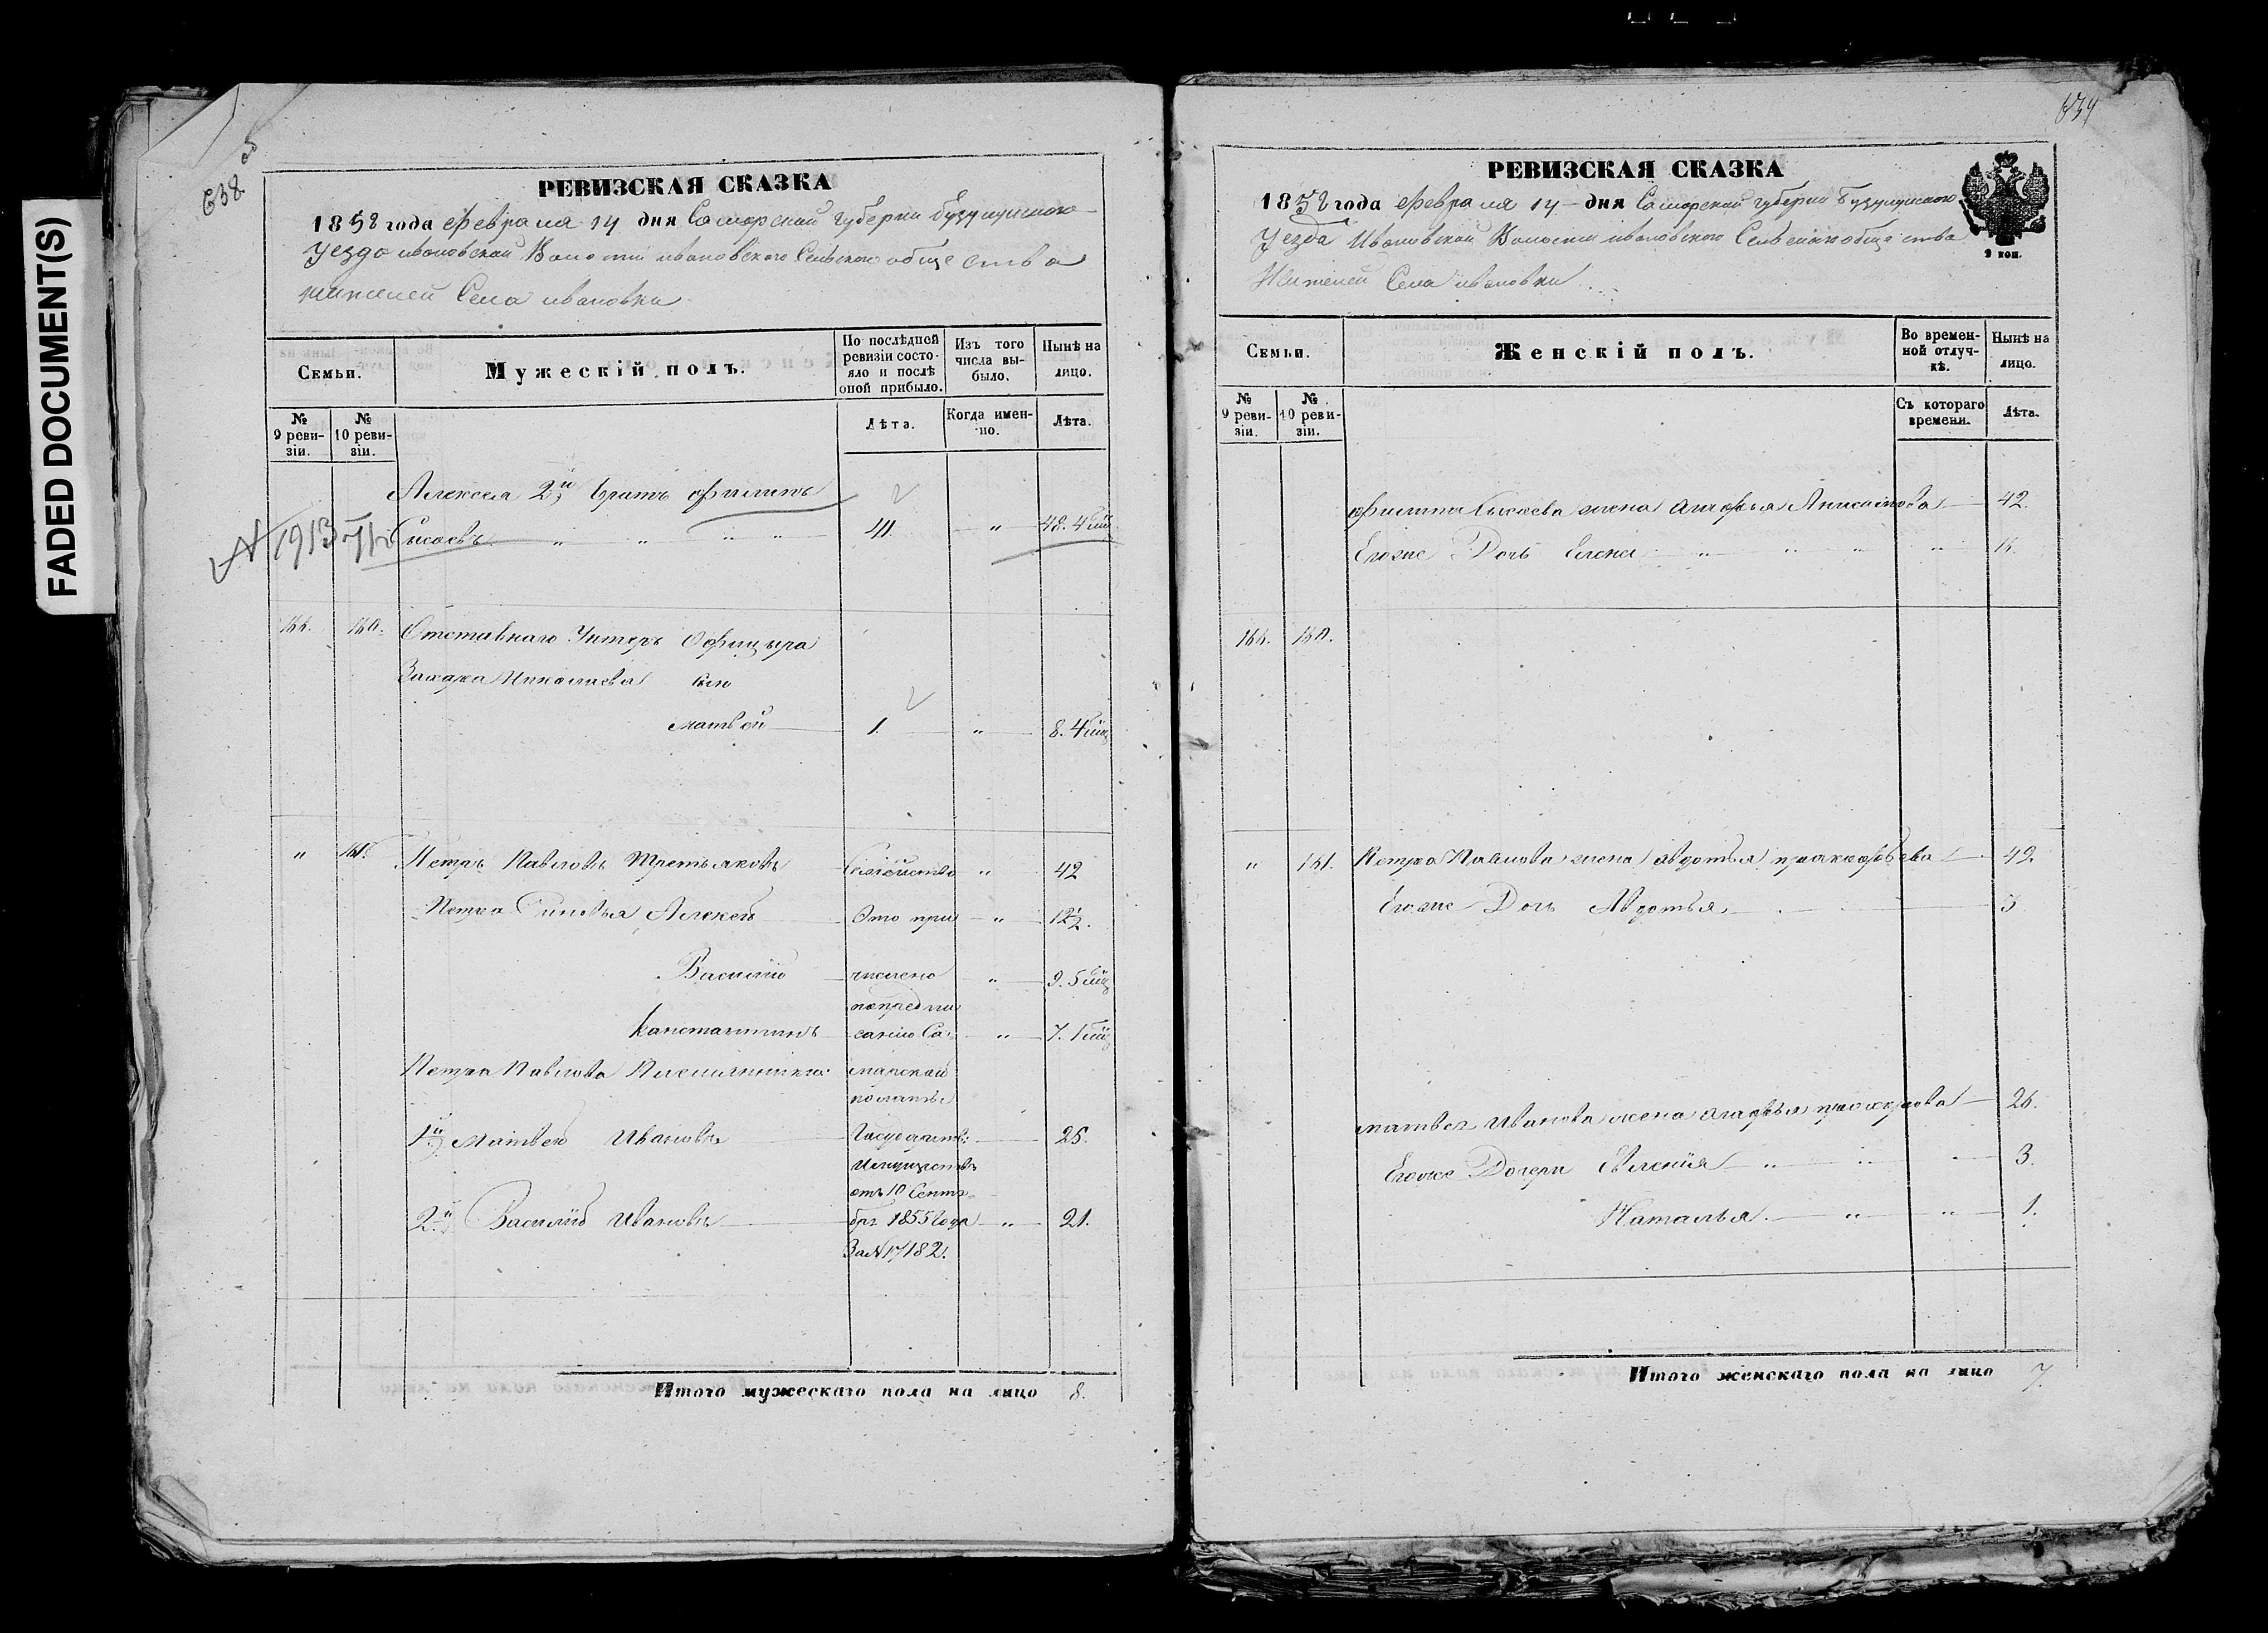 FADED DOCUMENT(S)
638
РЕВИЗСКАЯ СКАЗКА
1858 года Февраля 14 дня Самарской губернии Бузулукского
Уезда Ивановской Волости Ивановского Сельского общества
жителей Села Ивановки
Семьи.
Мужескій полъ.
По послѣдней ревизіи состояло и послѣ оной прибыло.
Изъ того числа выбыло.
Нынѣ на лицо.
№ 9 ревизіи.
№ 10 ревизіи.
Лѣта.
Когда именно.
Лѣта.
Алексея 2й братъ Филиппъ
Сысоевъ " " " " " 48. 4
160. Отставнаго Унтеръ Офицера
Захара Николаева сынъ
Матвей 1. " 8. 4
" 161. Петръ Павловъ Третьяковъ Семейство " 42
Петра Сыновья Алексей Это при " 12½.
Василий числено " 9. 5
по предпи
Константинъ санию Са " 7. 1
Петра Павлова Племянники марской
палаты
1й Матвей Ивановъ Государств: 25.
Имуществъ
отъ 10 Сентя
2й Василий Ивановъ бря 1855 Года " 21.
За №17182.
Итого мужескаго пола на лицо 8.
РЕВИЗСКАЯ СКАЗКА
1858 года Февраля 14 дня Самарской губернии Бузулукского
Уезда Ивановской Волости Ивановского Сельского общества
Жителей Села Ивановки
Семьи.
Женскій полъ.
Во временной отлучкѣ.
Нынѣ на лицо.
№ 9 ревизіи.
№ 10 ревизіи.
Съ котораго времени.
Лѣта.
Филиппа Сысоева жена Агафья 42.
Егоже Дочь Елена " " " "
160.
" 161. Петра Павлова жена Авдотья 42
Егоже Дочь Авдотья
Матвея Иванова жена Агафья 26.
Егоже Дочери " " " 3.
Наталья " " 1.
Итого женскаго пола на лицо 7